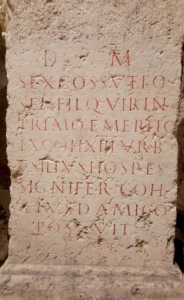 D M
SEX COSSVTIO
SEX FIL QVIRIN
PRIMO EMERITO
EX COH XIII VRB
TVTIVS HOSPES
SIGNIFER COH
EIVSD AMICO
POSVIT